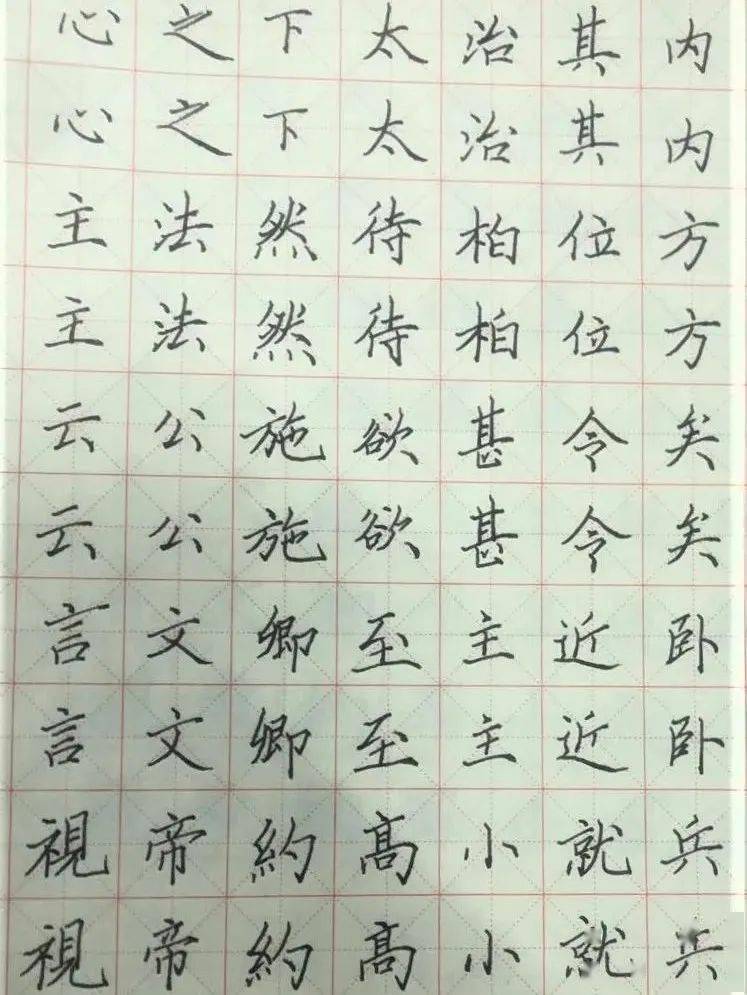 心之下太治其内
心之下太治其内
主法然待柏位方
主法然待柏位方
云公施欲甚令矣
云公施欲甚令矣
言文卿至主近卧
言文卿至主近卧
視帝約髙小就兵
視帝約髙小就兵